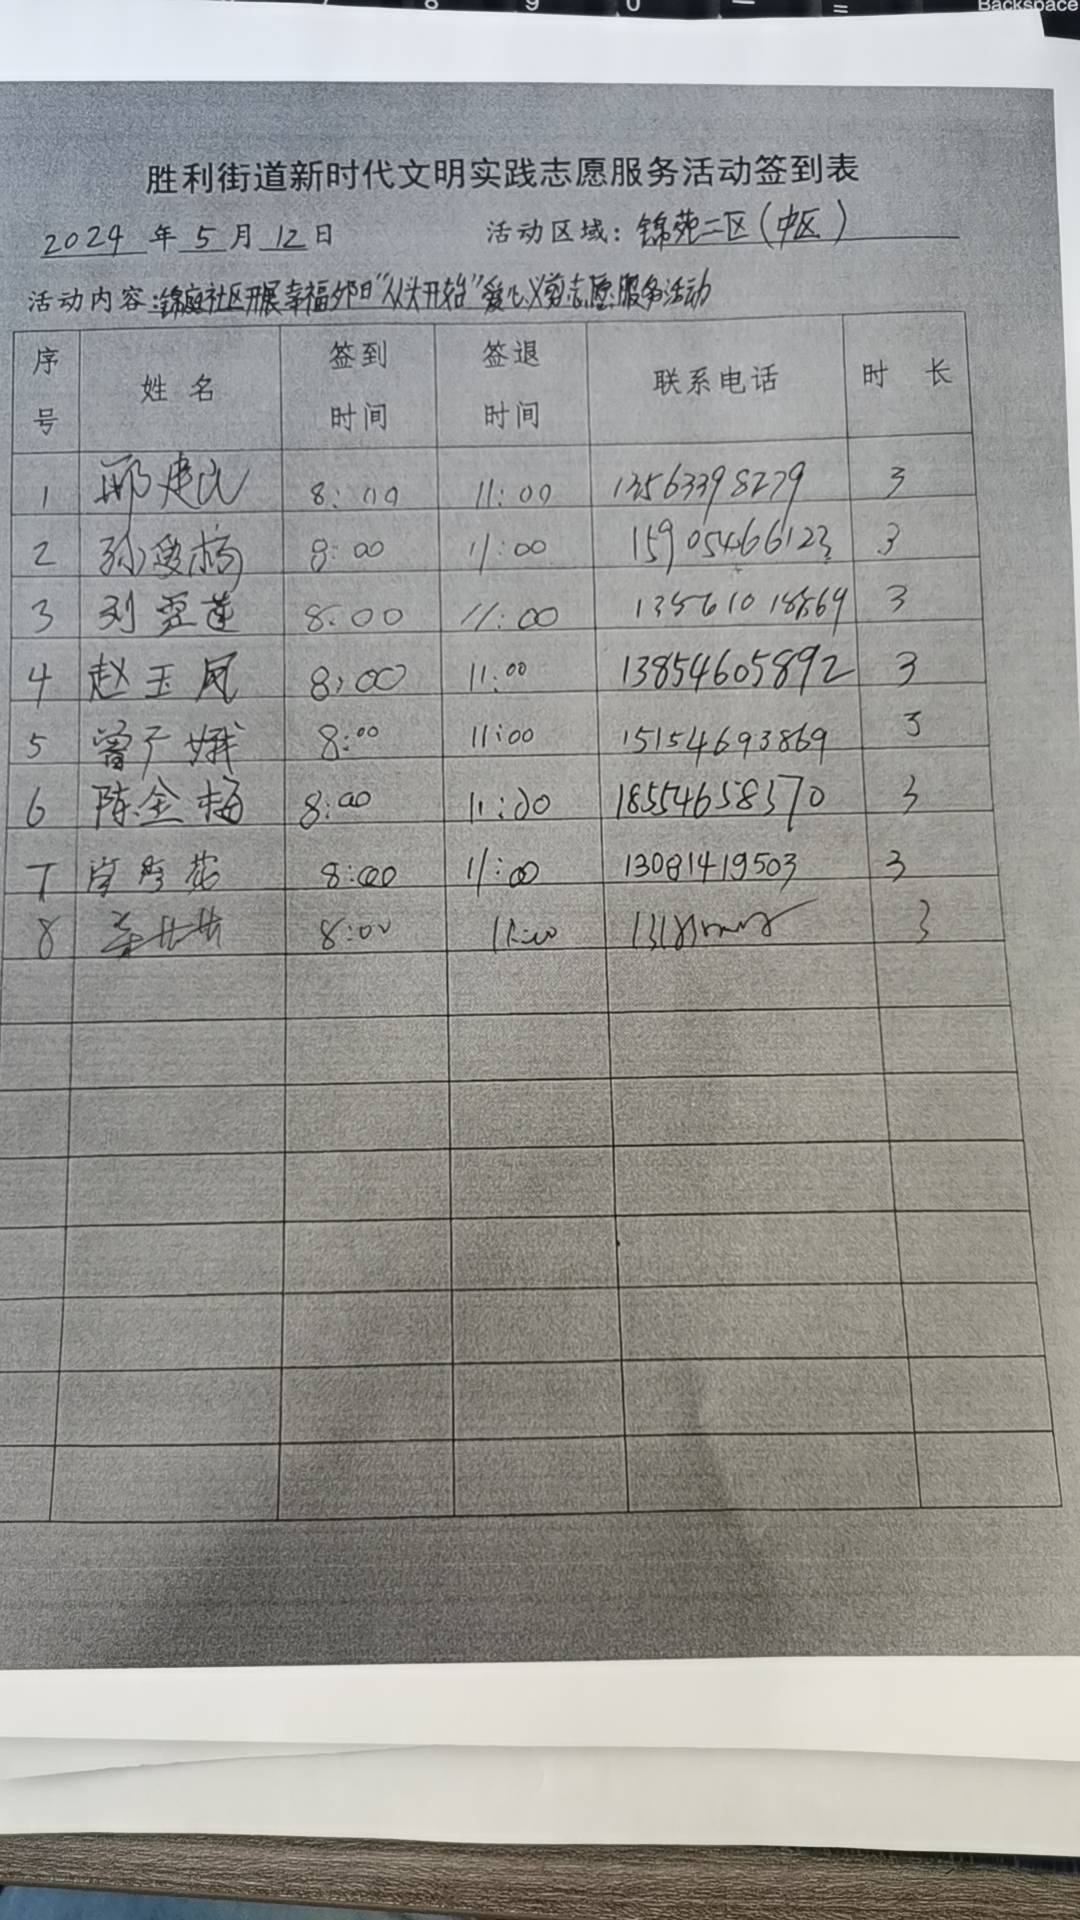 7 8 9 0 — = Backspace
胜利街道新时代文明实践志愿服务活动签到表
2024 年 5 月 12 日 活动区域：锦苑二区（中区）
活动内容：锦庭社区开展幸福夕阳“从头开始”爱心义剪志愿服务活动
序号 姓名 签到时间 签退时间 联系电话 时长
1 邢建民 8:00 11:00 13563398279 3
2 孙爱梅 8:00 11:00 15905466123 3
3 刘莲 8:00 11:00 13561018869 3
4 赵玉凤 8:00 11:00 13854605892 3
5 曾广娥 8:00 11:00 15154693869 3
6 陈金梅 8:00 11:00 18554658370 3
7 8:00 11:00 13081419503 3
8 8:00 11:00 3